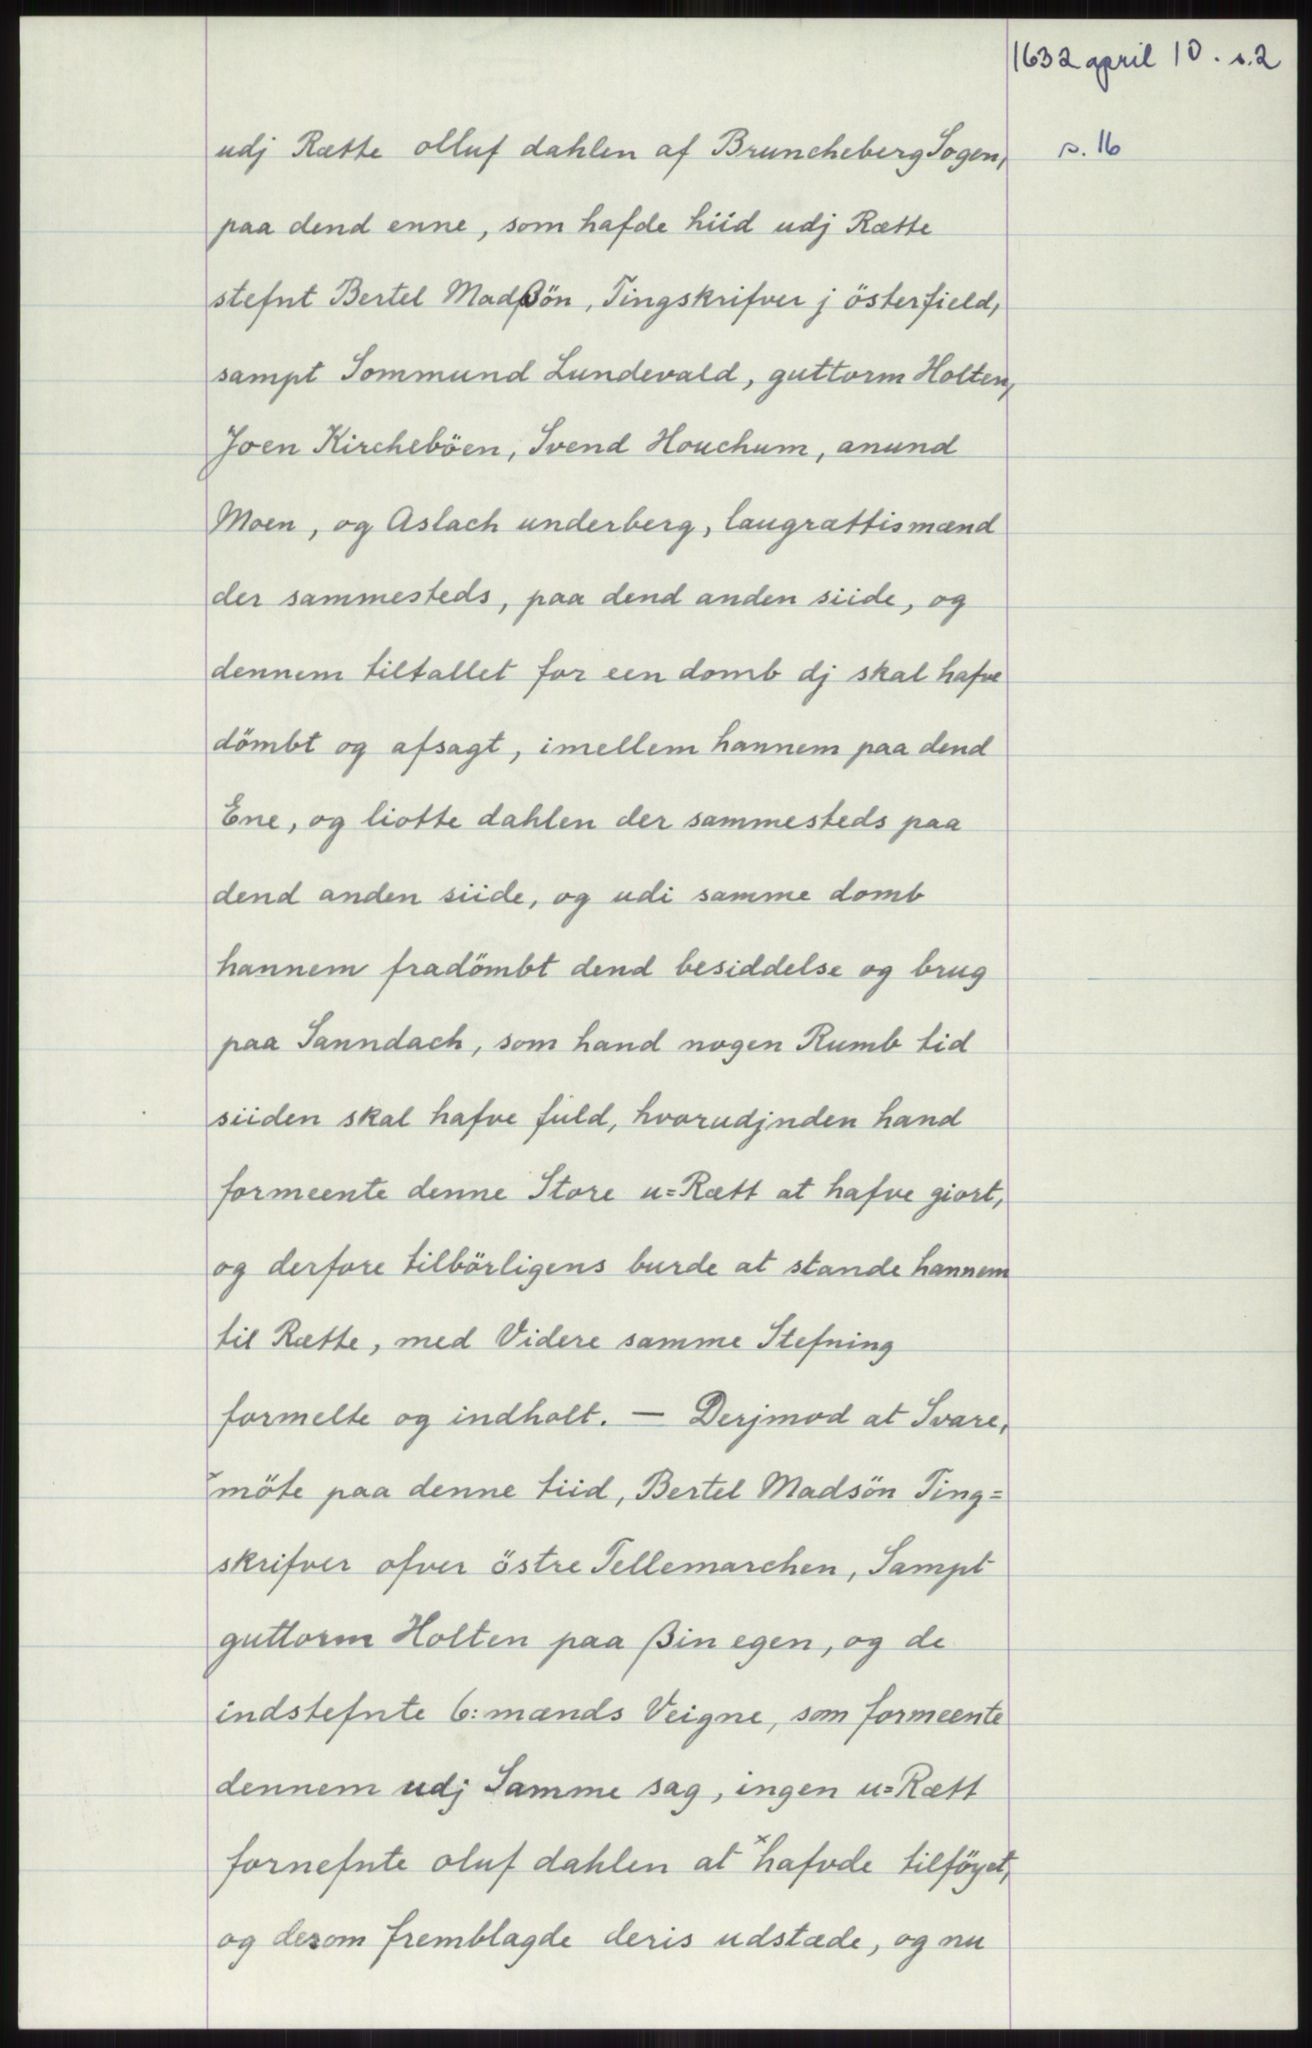 1632 april 10. s.2
udj Rætte olluf dahlen af Bruncheberg Sogen, s. 16
paa dend enne, som hafde hiid udj Rætte
stefnt Bertel Madßön, Tingskrifver j österfield,
sampt Sommund Lundevald, guttorm Holten,
Joen Kirchebøen, Svend Houchum, anund
Moen, og Aslach underberg, laugrættismænd
der sammesteds, paa dend anden siide, og
dennem tiltallet for een domb dj skal hafve
dömbt og afsagt, imellem hannem paa dend
Ene, og liotte dahlen der sammesteds paa
dend anden siide, og udi samme domb
hannem fradömbt dend besiddelse og brug
paa Sanndach, som hand nogen Rumb tid
siiden skal hafve fuld, hvorudjnden hand
formeente denne Store u=Rætt at hafve giort,
og derfore tilbörligens burde at stande hannem
til Rætte, med Videre samme Stefning
formelte og indholt. — Derjmod at Svare,
möte paa denne tiid, Bertel Madsön Ting=
skrifver ofver östre Tellemarchen, Sampt
guttorm Holten paa ßin egen, og de
indstefnte 6: mænds Veigne, som formeente
dennem udj Samme sag, ingen u=Rætt
fornefnte oluf dahlen at ˣhafvde tilföyet,
og desom fremblagde deris udstæde, og nu